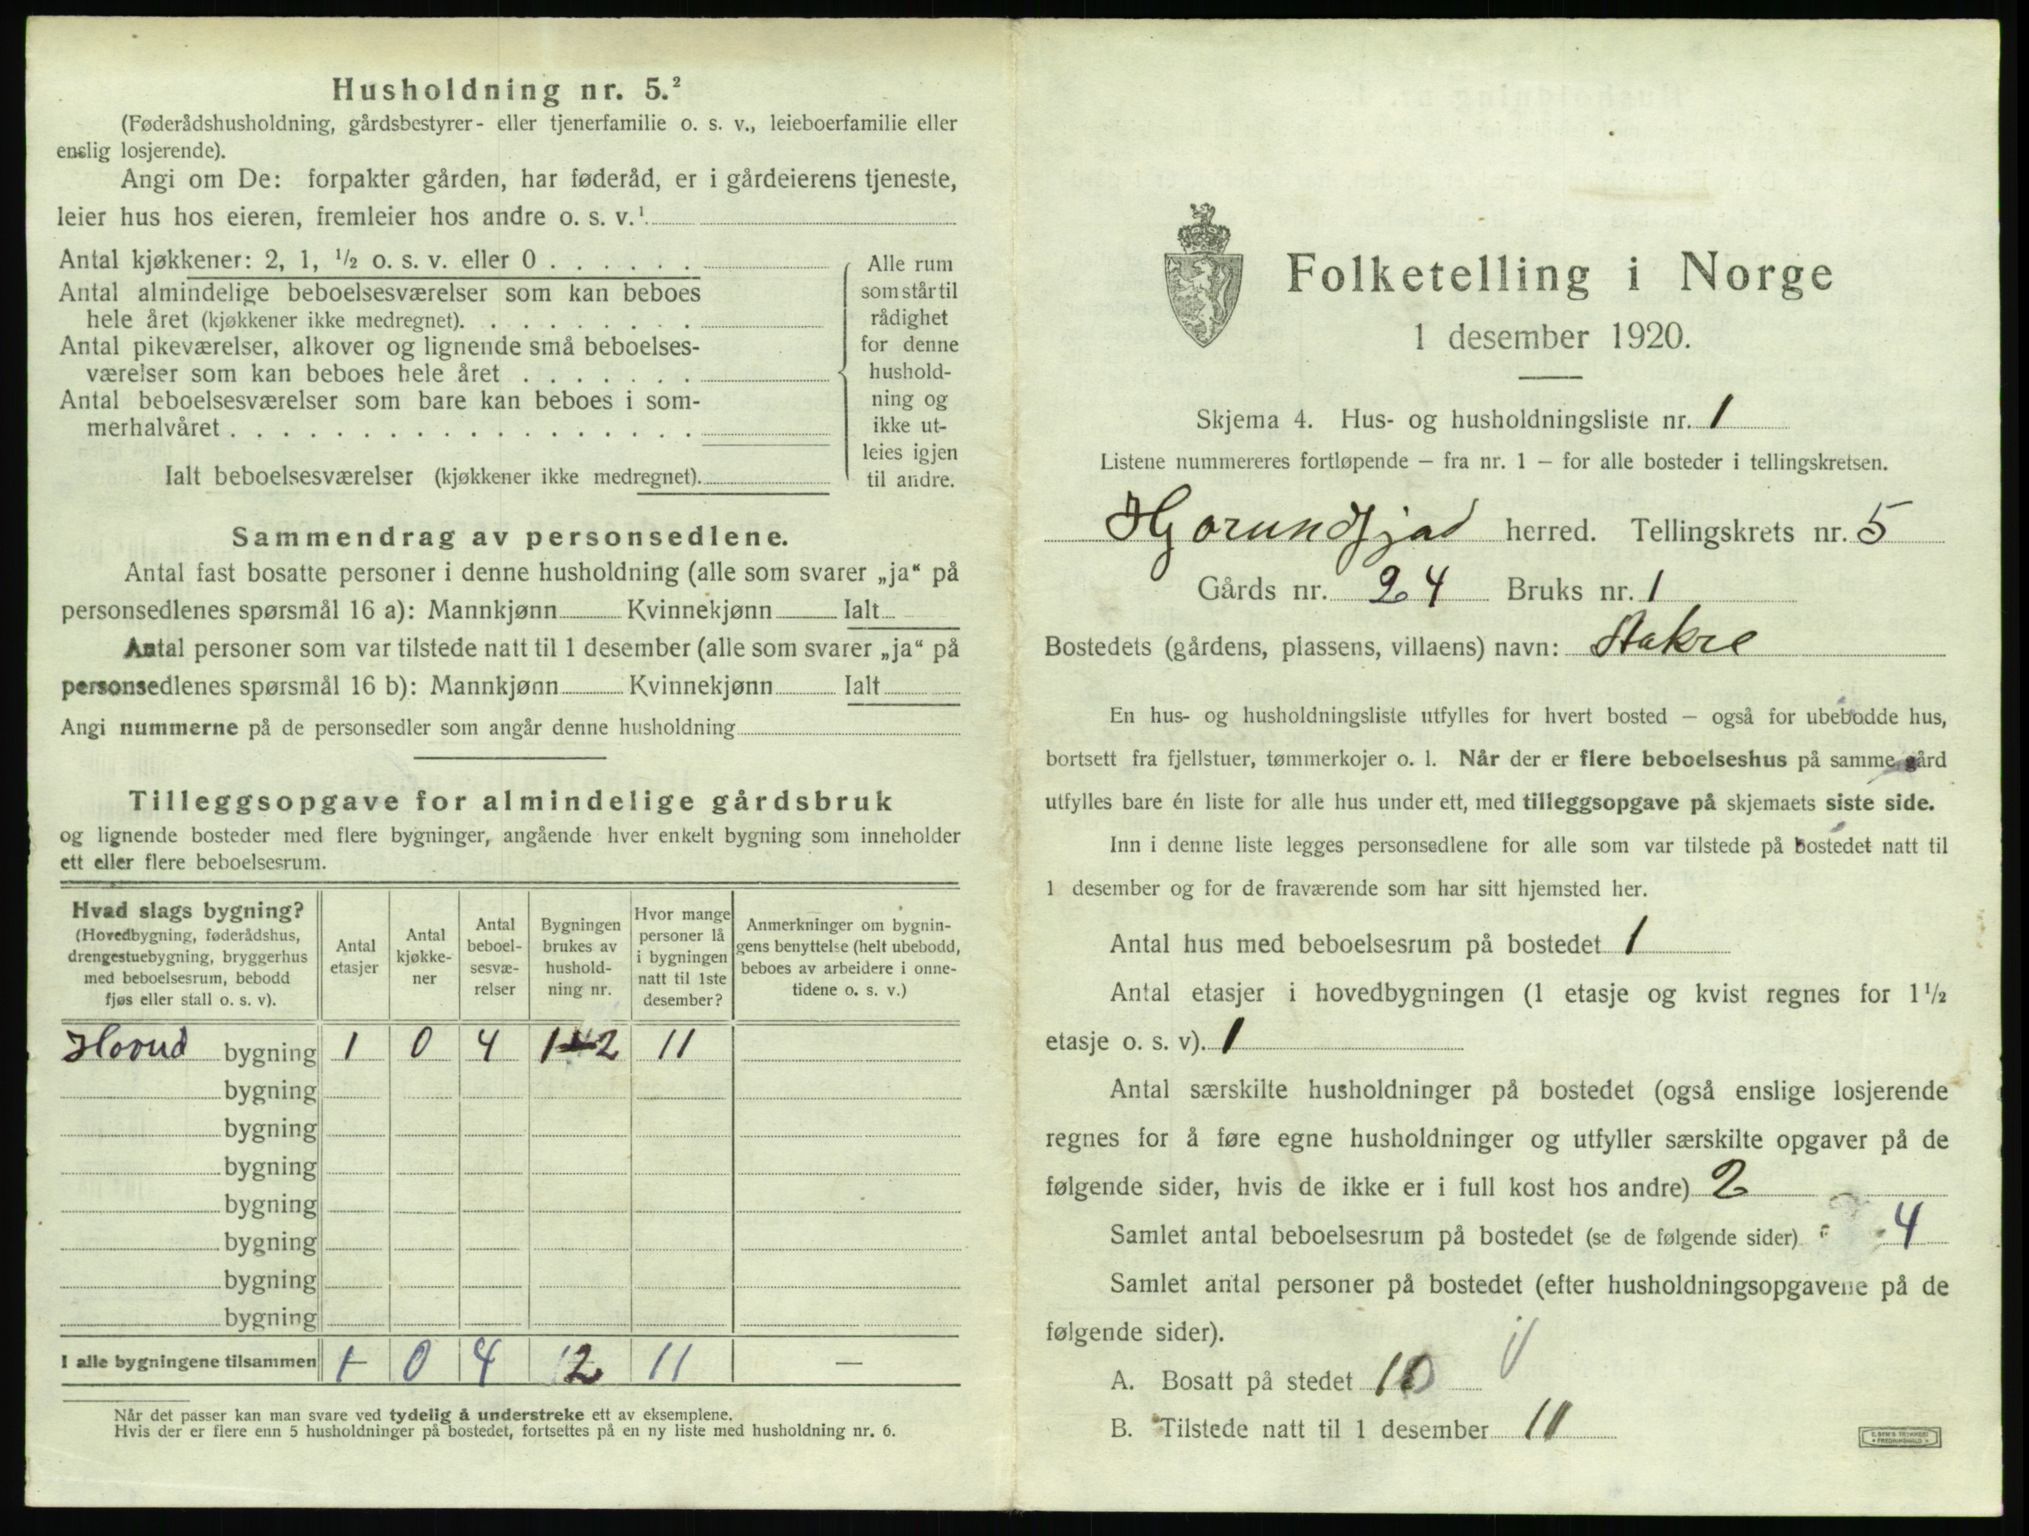 Husholdning nr. 5.²
(Føderådshusholdning, gårdsbestyrer- eller tjenerfamilie o. s. v., leieboerfamilie eller
enslig losjerende).
Angi om De: forpakter gården, har føderåd, er i gårdeierens tjeneste,
leier hus hos eieren, fremleier hos andre o. s. v.¹
Antal kjøkkener: 2, 1, ½ o. s. v. eller 0 . . . . . .
Antal almindelige beboelsesværelser som kan beboes
hele året (kjøkkener ikke medregnet). . . . . . . . .
Antal pikeværelser, alkover og lignende små beboelses-
værelser som kan beboes hele året . . . . . . .
Antal beboelsesværelser som bare kan beboes i som-
merhalvåret . . . . . . . . . . . . . . . . . .
Ialt beboelsesværelser (kjøkkener ikke medregnet).
Alle rum
som står til
rådighet
for denne
hushold-
ning og
ikke ut-
leies igjen
til andre.
Sammendrag av personsedlene.
Antal fast bosatte personer i denne husholdning (alle som svarer „ja“ på
personsedlenes spørsmål 16 a): Mannkjønn Kvinnekjønn Ialt
Antal personer som var tilstede natt til 1 desember (alle som svarer „ja“ på
personsedlenes spørsmål 16 b): Mannkjønn Kvinnekjønn Ialt
Angi nummerne på de personsedler som angår denne husholdning
Tilleggsopgave for almindelige gårdsbruk
og lignende bosteder med flere bygninger, angående hver enkelt bygning som inneholder
ett eller flere beboelsesrum.
Hvad slags bygning?
(Hovedbygning, føderådshus,
drengestuebygning, bryggerhus
med beboelsesrum, bebodd
fjøs eller stall o. s. v).
Antal
etasjer
Antal
kjøkke-
ner
Antal
beboel-
sesvæ-
relser
Bygningen
brukes av
hushold-
ning nr.
Hvor mange
personer lå
i bygningen
natt til 1ste
desember?
Anmerkninger om bygnin-
gens benyttelse (helt ubebodd,
beboes av arbeidere i onne-
tidene o. s. v.)
Hovud bygning 1 0 4 1 2 11
bygning
bygning
bygning
bygning
bygning
bygning
bygning
I alle bygningene tilsammen 1 0 4 2 11 —
Når det passer kan man svare ved tydelig å understreke ett av eksemplene.
Hvis der er flere enn 5 husholdninger på bostedet, fortsettes på en ny liste med husholdning nr. 6.
Folketelling i Norge
1 desember 1920.
Skjema 4. Hus- og husholdningsliste nr. 1
Listene nummereres fortløpende – fra nr. 1 – for alle bosteder i tellingskretsen.
Hjorundfjord herred. Tellingskrets nr. 5
Gårds nr. 24 Bruks nr. 1
Bostedets (gårdens, plassens, villaens) navn: Aakre
En hus- og husholdningsliste utfylles for hvert bosted – også for ubebodde hus,
bortsett fra fjellstuer, tømmerkojer o. l. Når der er flere beboelseshus på samme gård
utfylles bare én liste for alle hus under ett, med tilleggsopgave på skjemaets siste side.
Inn i denne liste legges personsedlene for alle som var tilstede på bostedet natt til
1 desember og for de fraværende som har sitt hjemsted her.
Antal hus med beboelsesrum på bostedet 1
Antal etasjer i hovedbygningen (1 etasje og kvist regnes for 1½
etasje o. s. v). 1
Antal særskilte husholdninger på bostedet (også enslige losjerende
regnes for å føre egne husholdninger og utfyller særskilte opgaver på de
følgende sider, hvis de ikke er i full kost hos andre) 2
Samlet antal beboelsesrum på bostedet (se de følgende sider) 4
Samlet antal personer på bostedet (efter husholdningsopgavene på de
følgende sider).
A. Bosatt på stedet 10
B. Tilstede natt til 1 desember 11